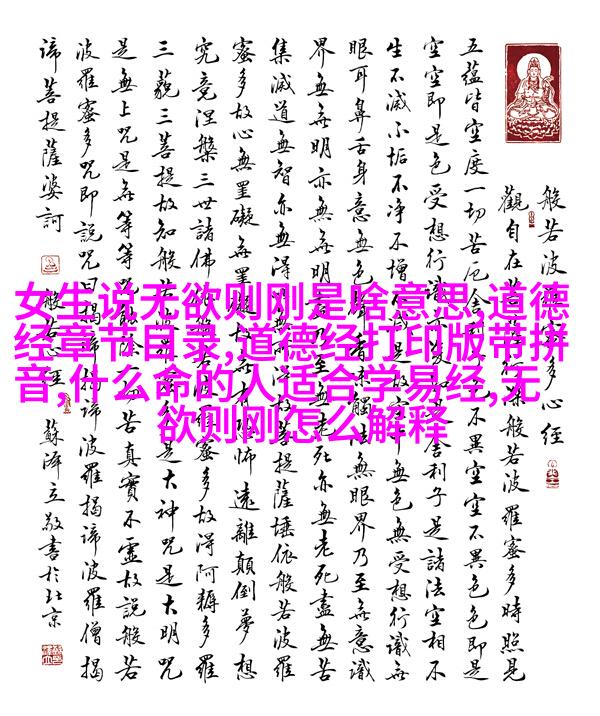 女生说无欲则刚是啥意思,道德
经章节目录,道德经打印版带拼
音,什么命的人适合学易经,无
欲则刚怎么解释
般若波多心經
觀自在菩般若波羅蜜多時照見
五蘊皆空度一切苦厄舍不異空空不異色色即是
空空即是色受想行識舍利子是諸法空相不
生不滅不垢不净不增無色無受想行識無
眼耳鼻舌身意無色無眼界乃至無意識
界無無明亦無無明死亦無老死盡無苦
集滅道無智亦無得菩提薩埵依般若波羅
蜜多故心無罣礙無罣怖遠離顛倒夢想
究竟涅槃三世諸佛蜜多故得阿耨多羅
三藐三菩提故知般是大神咒是大明咒
是無上咒是無等等咒苦真實不虛故說般若
波羅蜜多咒即說咒曰揭諦波羅揭諦波羅僧揭
諦菩提薩婆訶
般若心經
敬書於北京